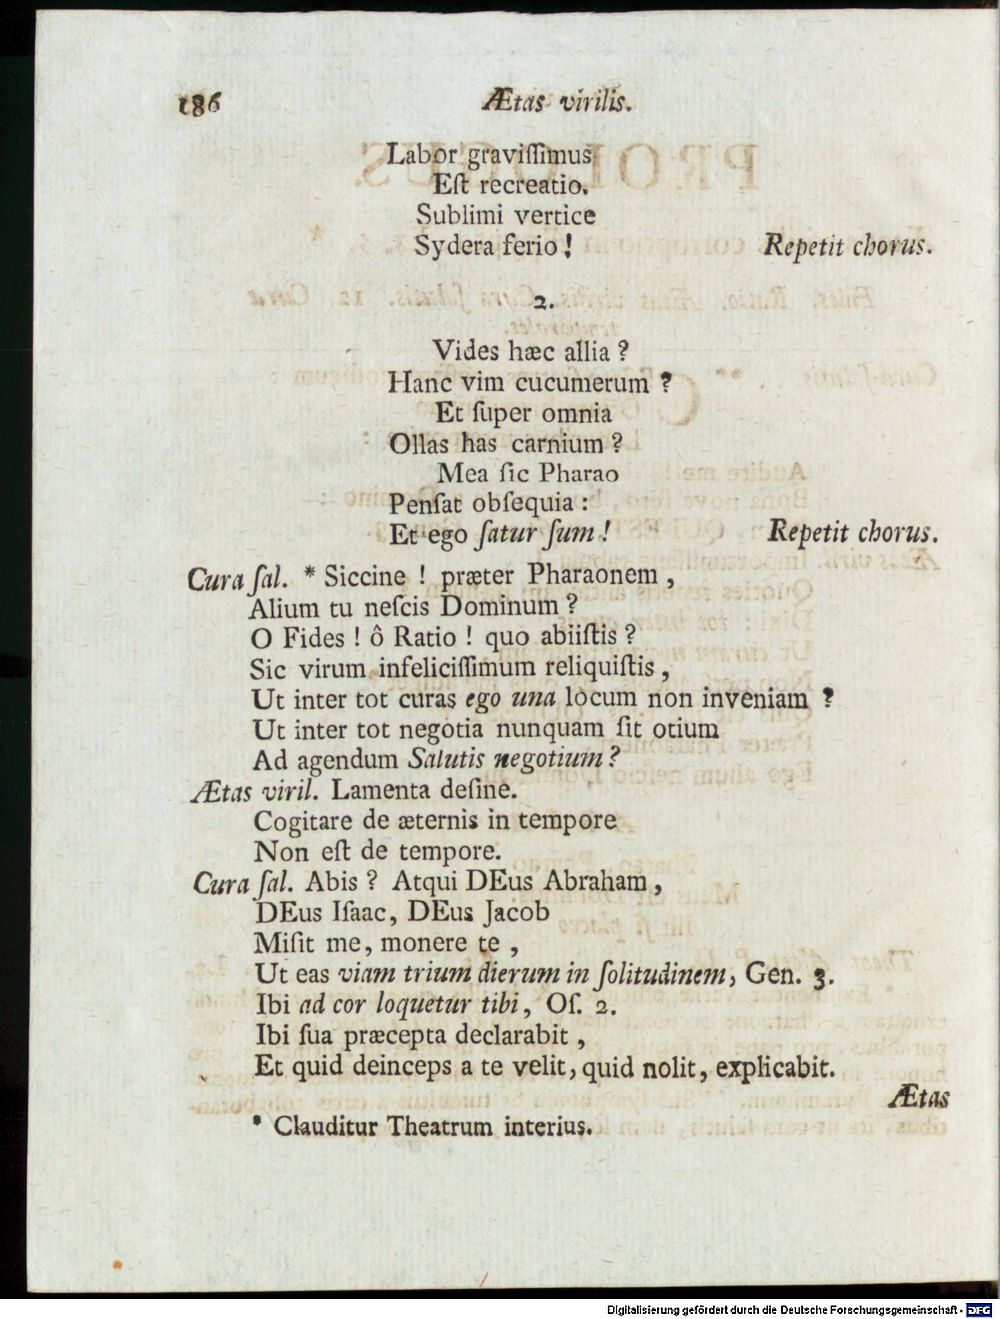 186 Ætas virilis.
Labor graviſſimus
Eſt recreatio.
Sublimi vertice
Sydera ferio! Repetit chorus.
2.
Vides hæc allia?
Hanc vim cucumerum?
Et ſuper omnia
Ollas has carnium?
Mea ſic Pharao
Penſat obſequia:
Et ego ſatur ſum! Repetit chorus.
Cura ſal. * Siccine! præter Pharaonem,
Alium tu neſcis Dominum?
O Fides! ô Ratio! quo abiiſtis?
Sic virum infeliciſſimum reliquiſtis,
Ut inter tot curas ego una locum non inveniam?
Ut inter tot negotia nunquam ſit otium
Ad agendum Salutis negotium?
Ætas viril. Lamenta deſine.
Cogitare de æternis in tempore
Non eſt de tempore.
Cura ſal. Abis? Atqui DEus Abraham,
DEus Iſaac, DEus Jacob
Miſit me, monere te,
Ut eas viam trium dierum in ſolitudinem, Gen. 3.
Ibi ad cor loquetur tibi, Oſ. 2.
Ibi ſua præcepta declarabit,
Et quid deinceps a te velit, quid nolit, explicabit.
Ætas
* Clauditur Theatrum interius.
Digitalisierung gefördert durch die Deutsche Forschungsgemeinschaft - DFG